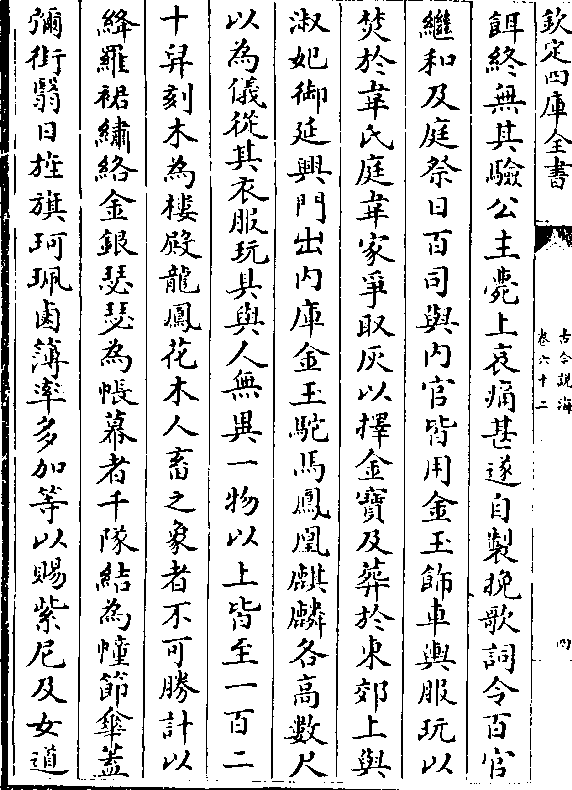 欽定四庫全書
古今說海
卷六十二
四
餌終無其驗公主薨上哀痛甚遂自製挽歌詞令百官
繼和及庭祭日百司與内官皆用金玉飾車輿服玩以
焚於韋氏庭韋家爭取灰以擇金寶及葬於東郊上與
淑妃御延興門出内庫金玉駝馬鳳凰麒麟各高數尺
以為儀從其衣服玩具與人無異一物以上皆至一百二
十舁刻木為樓殿龍鳳花木人畜之象者不可勝計以
絳羅裙繡絡金銀瑟瑟為帳幕者千隊結為幢節傘蓋
彌街翳日旌旗珂珮鹵簿率多加等以賜紫尼及女道